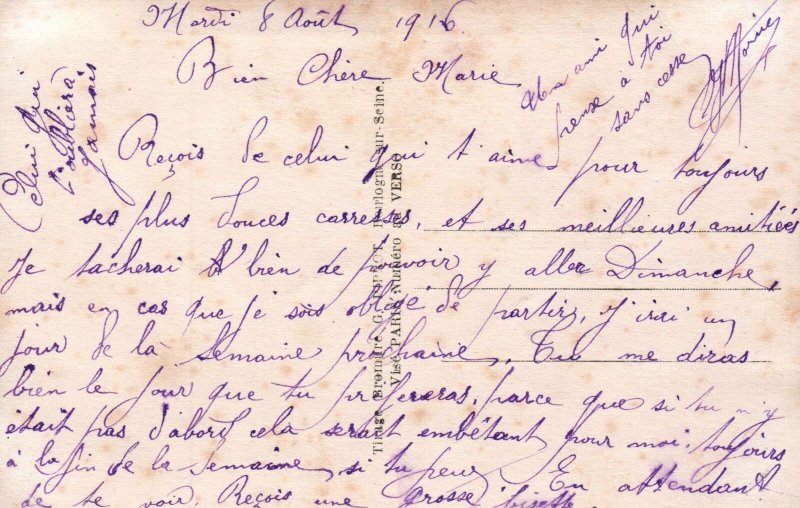 Mardi 8 Août 1916.
Bien Chère Marie
Reçois de celui qui t'aime pour toujours
ses plus douces carresses, et ses meillieures amitiées
Je tacherai bien de pouvoir y aller Dimanche,
mais en cas que je sois obligé de partir, j'irai un
jour de la Semaine prochaine, Tu me diras
bien le jour que tu prefereras, parce que si tu n'y
était pas d'abord cela serait embêtant pour moi. toujours
à la fin de la Semaine, si tu peux, En attendant
de te voir. Reçois une grosse bisette
Celui qui
t'oubliera
Jamais
Un ami qui
pense a toi
sans cesse
Tirage Bromure G. PIPRECT, Boulogne-sur-Seine.
Visé PARIS Numéro au VERSO